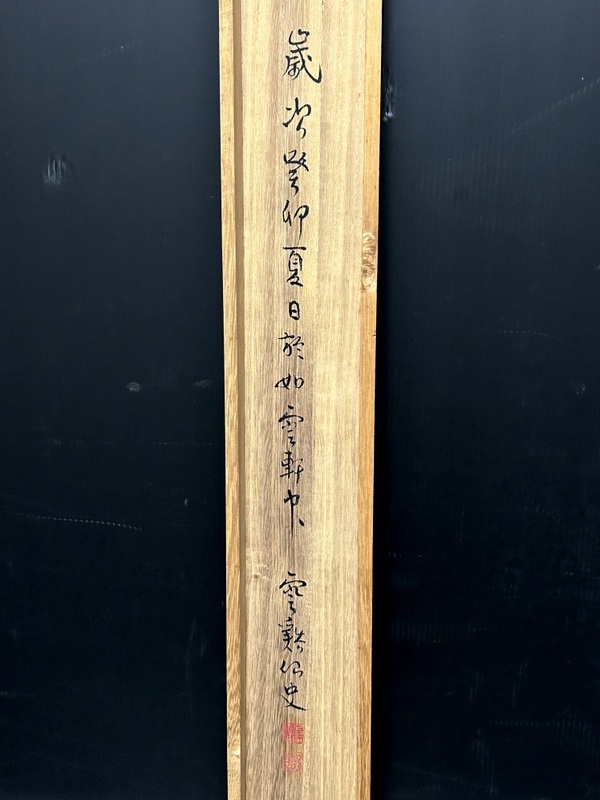 歲次癸卯夏日於如雲軒中 雲谿仙史